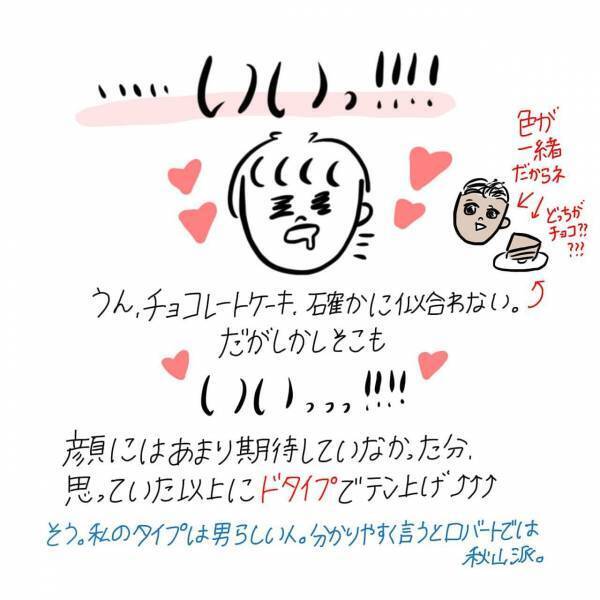 ..... いいっ!!!!
色が
一緒
だからネ
どっちが
チョコ??
???
うん、チョコレートケーキ、確かに似合わない。
だがしかしそこも
いいっっっ!!!!
顔にはあまり期待していなかった分、
思っていた以上にドタイプでテン上げ↑↑↑
そう。私のタイプは男らしい人。分かりやすく言うとロバートでは
秋山派。